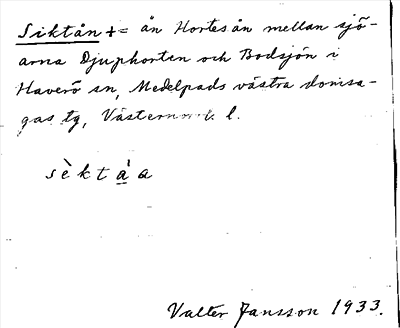 Siktån += ån Hortesån mellan sjö-
arna Djuphorten och Bodsjön i
Haverö sn, Medelpads västra domsa-
gas tg, Västernorrl. l.
sèktà̱a
Valter Jansson 1933.